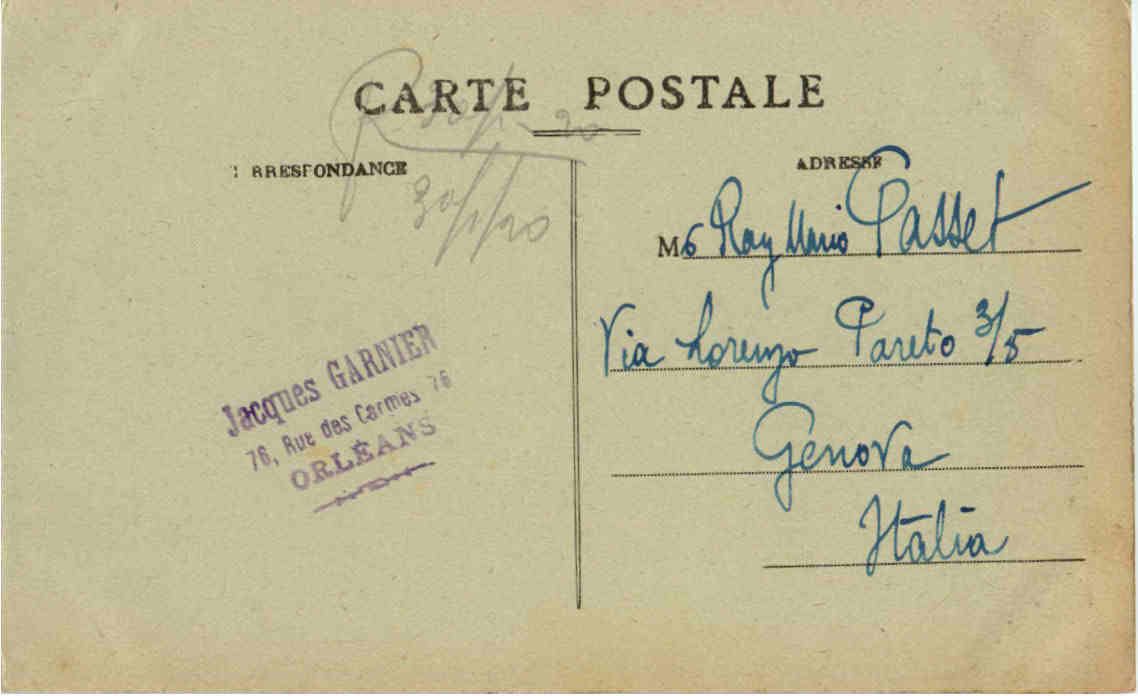 CARTE POSTALE
RRESPONDANCE
ADRESSE
30/1/20
Jacques GARNIER
76, Rue des Carmes 76
ORLÉANS
M Rag Mario Passet
Via Lorenzo Pareto 3/5
Genova
Italia